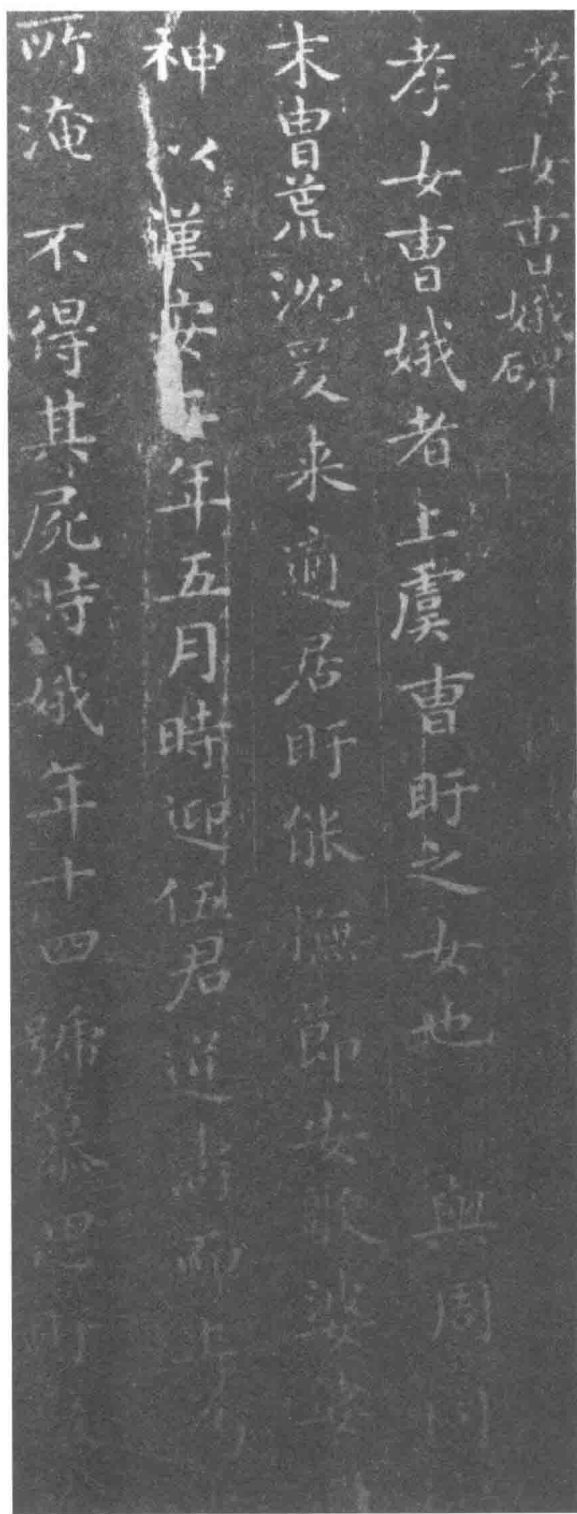 孝女曹娥碑
孝女曹娥者上虞曹盱之女也 與周同
末曹荒沈爰来適居盱能撫節安歌婆娑
神以漢安二年五月時迎伍君逆濤而上為
所淹不得其屍時娥年十四號慕思盱